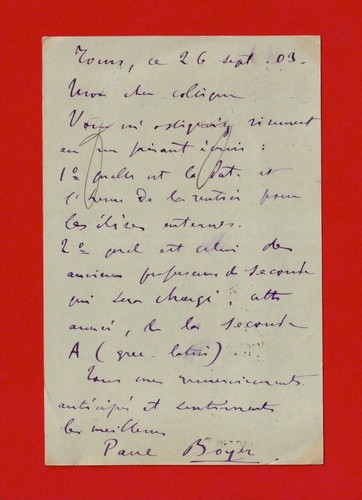 Tours, ce 26 sept. 03.
Mon cher collègue
Vous m'obligeriez vivement
en me faisant écrire :
1º quelle est la dat. et
l'heure de la rentrée pour
les élèves externes.
2º quel est celui des
anciens professeurs de seconde
qui sera chargé, cette
année, de la seconde
A (grec-latin).
Tous mes remerciements
anticipés et sentiments
les meilleurs
Paul Boyer